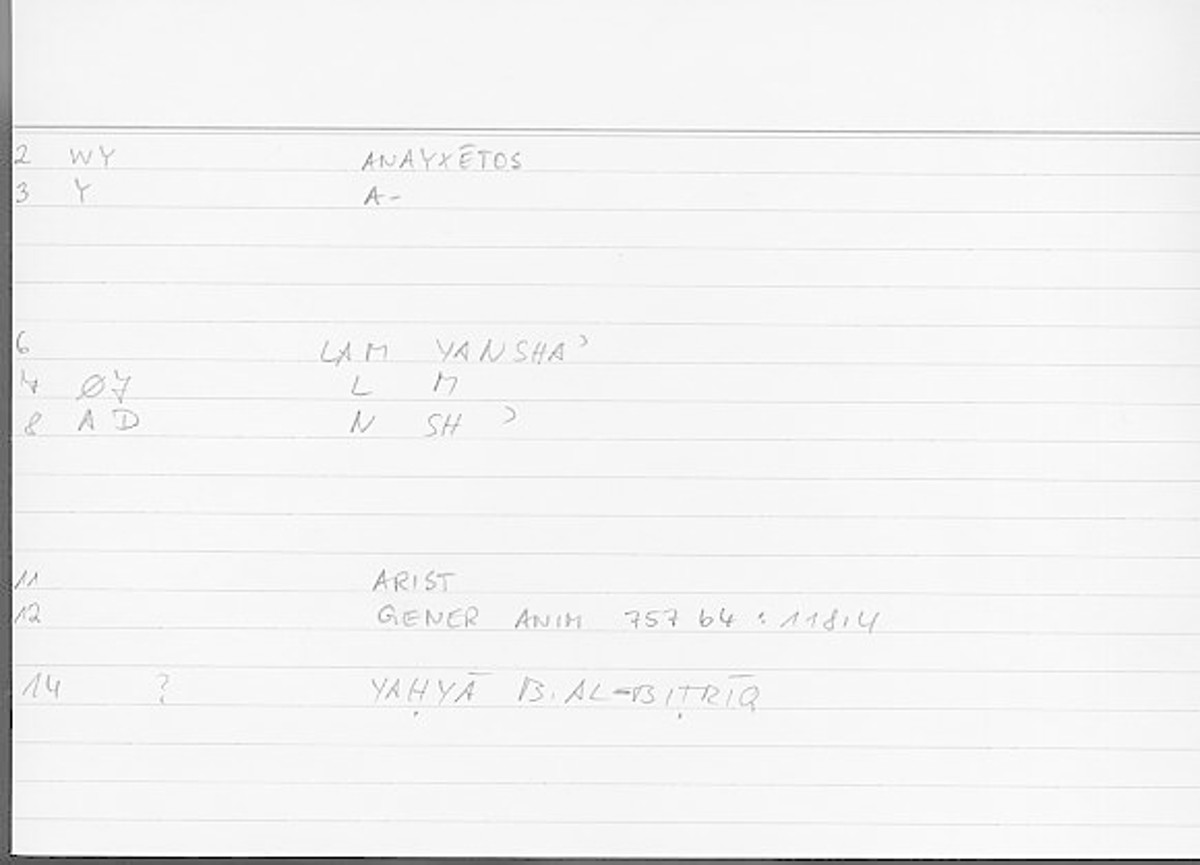 2 WY ANAYXĒTOS
3 Y A-
6 LAM YANSHAʾ
7 ØJ L M
8 A D N SH ʾ
11 ARIST
12 GENER ANIM 757 b4 : 118,4
14 ? YAḤYĀ B. AL-BIṬRĪQ